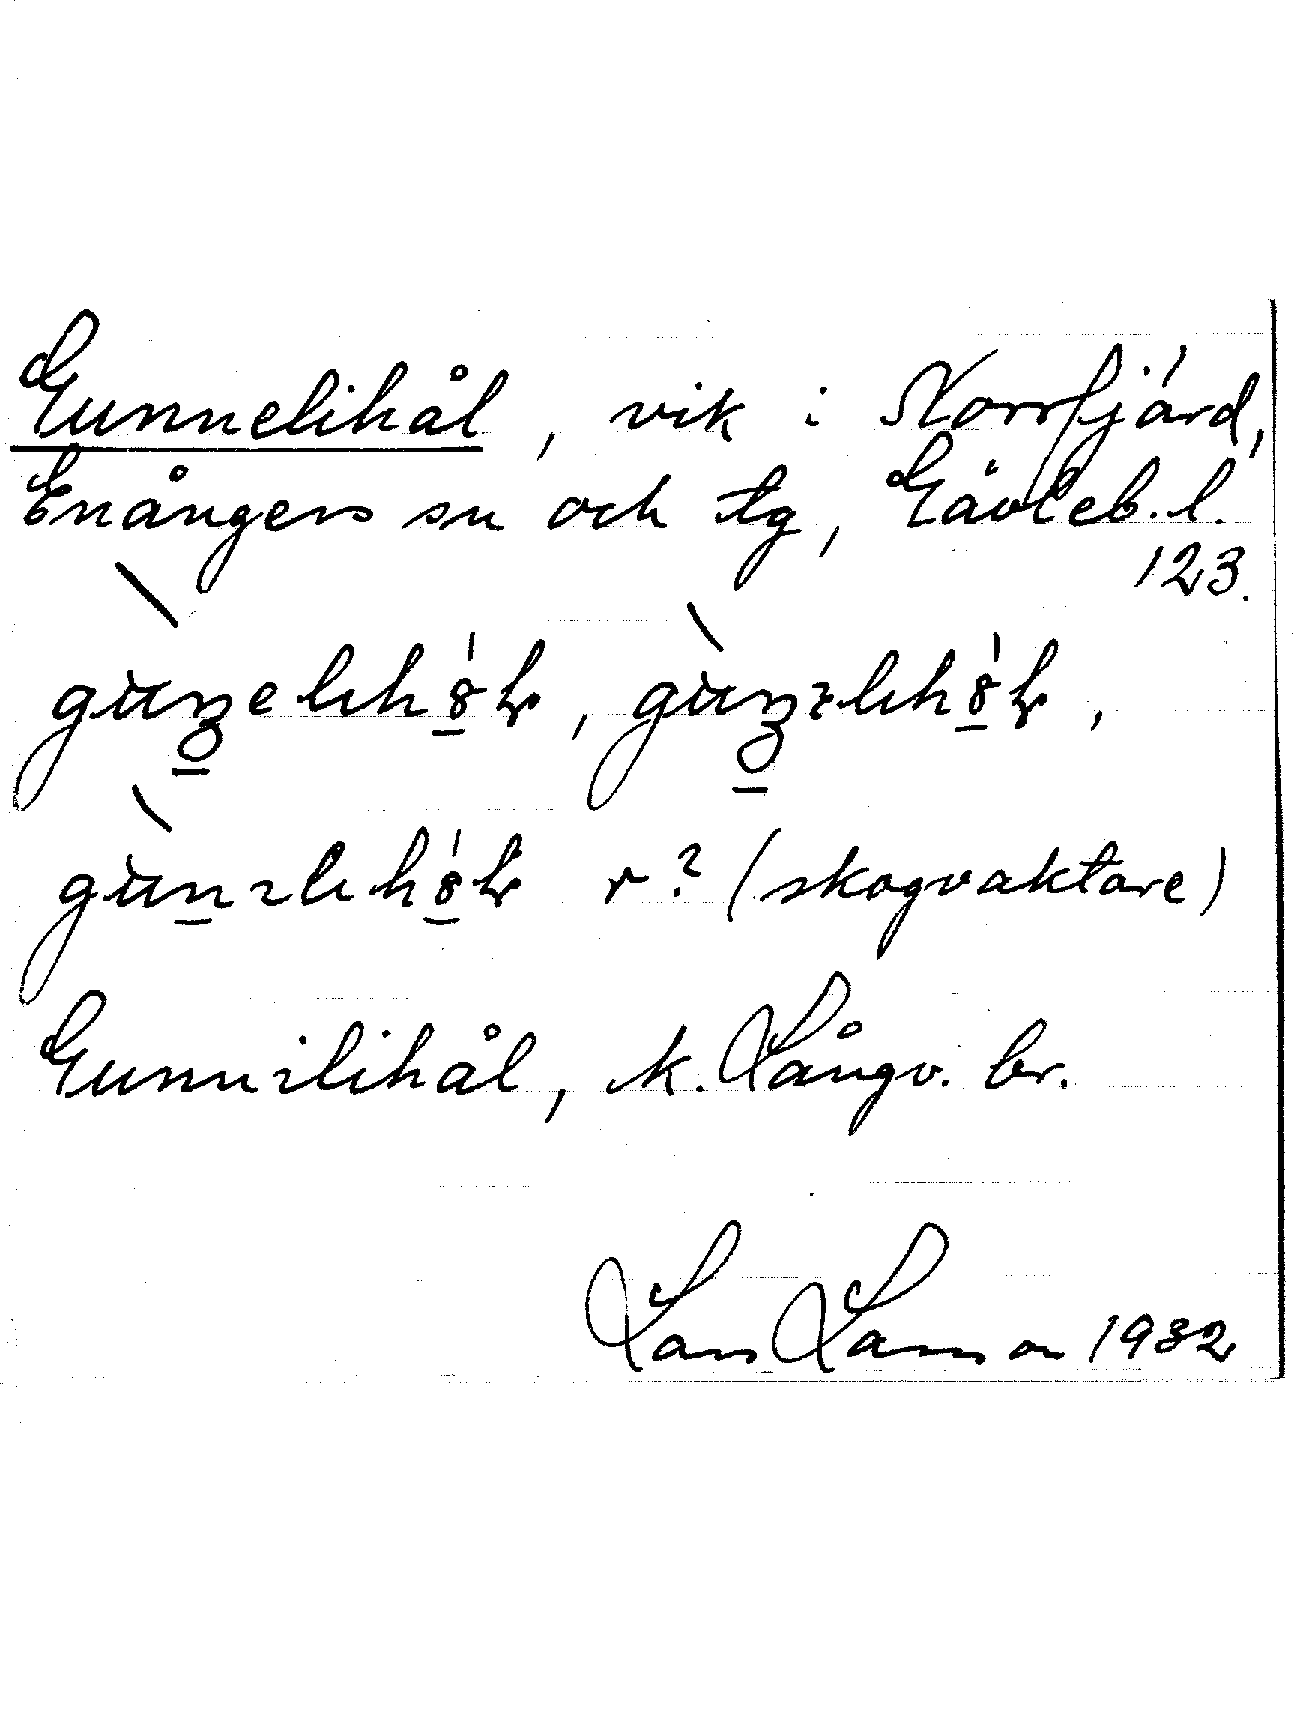 Gunnelihål, vik i Norrfjärd,
Enångers sn och tg, Gävleb. l.
123.
r? (skogvaktare)
Gunnilihål, k. Långv. br.
Lars Larsson 1932